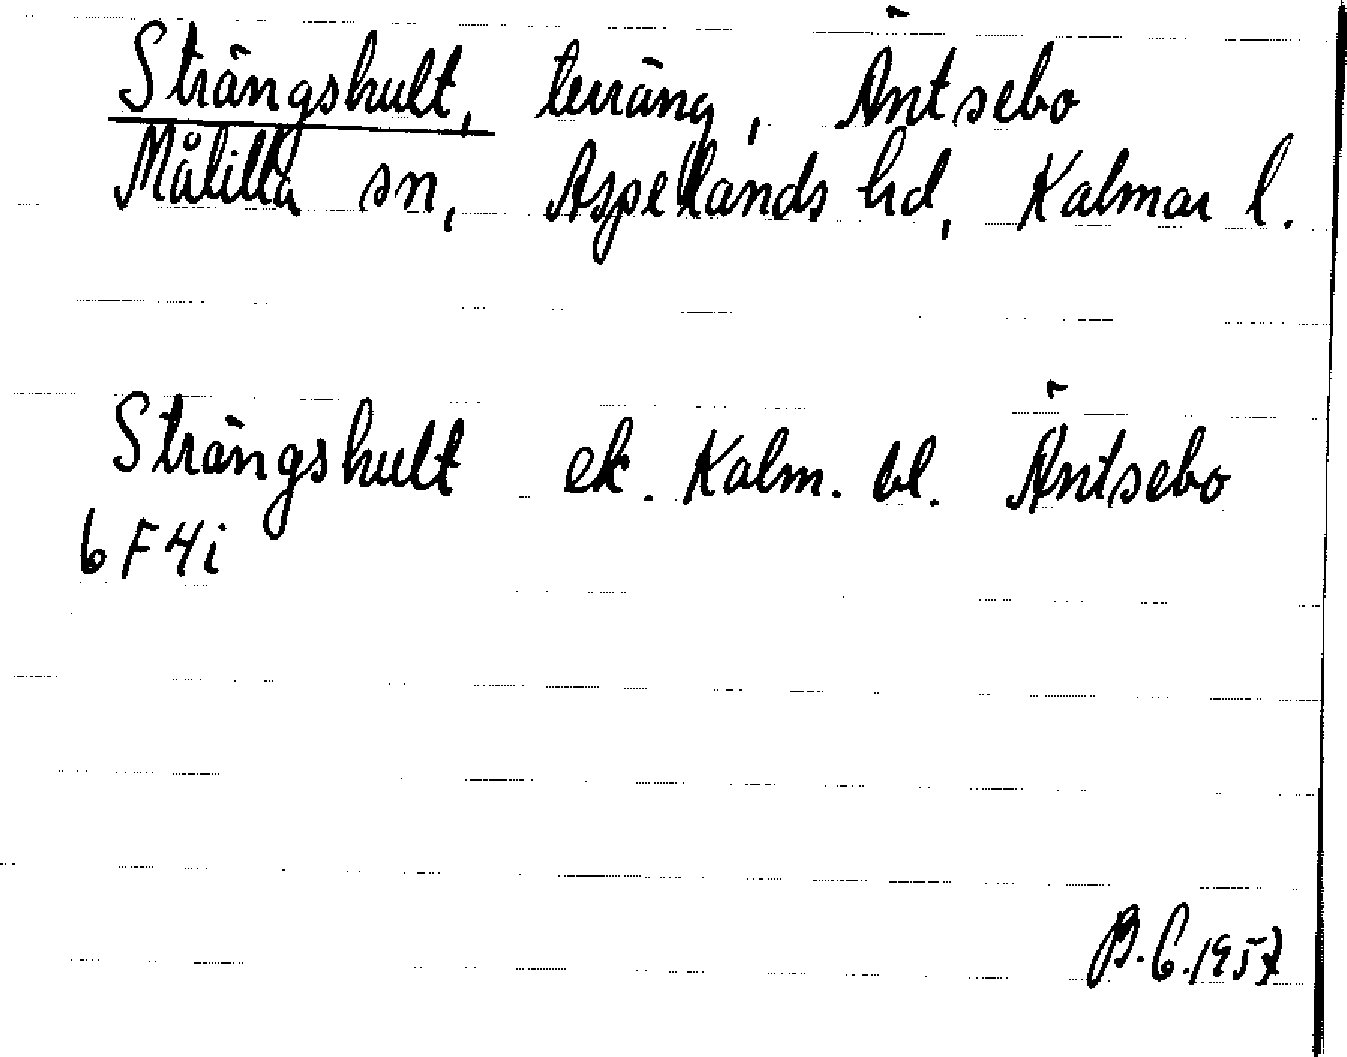 Strängshult, terräng, Äntsebo
Målilla sn, Aspelands hd, Kalmar l.
Strängshult ek. Kalm. bl. Äntsebo
6F4i
B.C.1957